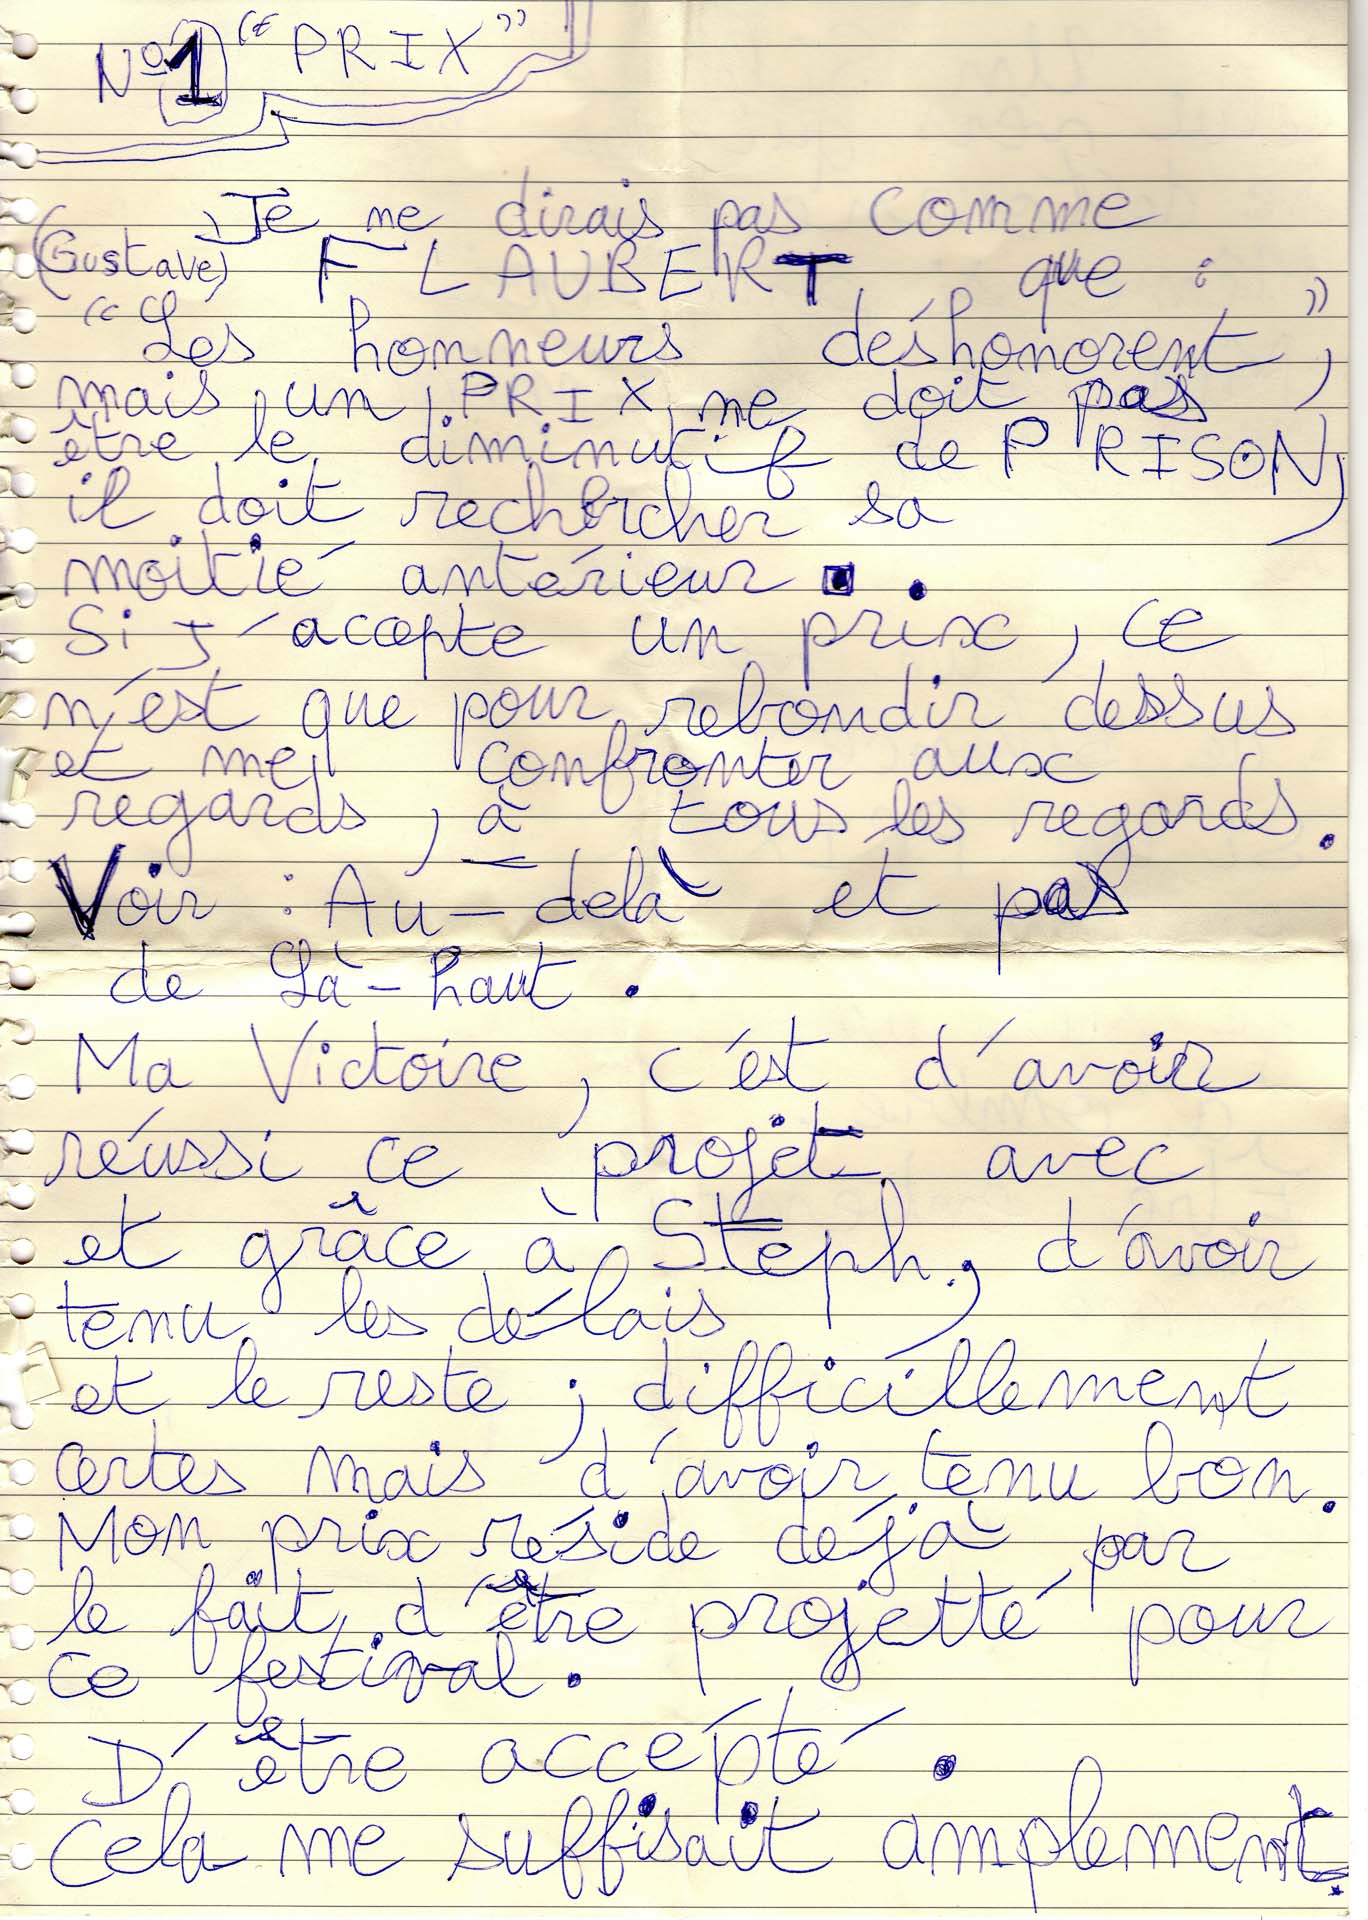 N°1 "PRIX"
Je ne dirais pas comme
(Gustave) FLAUBERT que :
"Les honneurs déshonorent",
mais un PRIX ne doit pas
être le diminutif de PRISON,
il doit rechercher sa
moitié antérieur .
Si j'accepte un prix, ce
n'est que pour rebondir dessus
et me confronter aux
regards, à tous les regards.
Voir : Au-delà et pas
de Là-haut.
Ma Victoire, c'est d'avoir
réussi ce projet avec
et grâce à Steph., d'avoir
tenu les délais
et le reste ; difficillement
certes mais d'avoir tenu bon.
Mon prix réside déjà par
le fait d'être projetté pour
ce festival.
D'être accépté.
Cela me suffisait amplement.